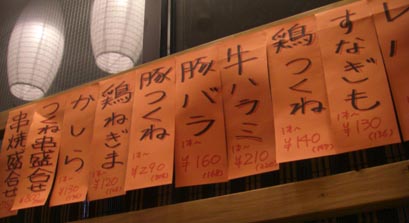 すなぎも
1本〜
¥130
鶏つくね
1本〜
¥140
牛ハラミ
1本〜
¥210
豚バラ
1本〜
¥160
豚つくね
1本〜
¥290
鶏ねぎま
1本〜
¥120
かしら
1本〜
¥130
つくね串盛合せ
串焼盛合せ